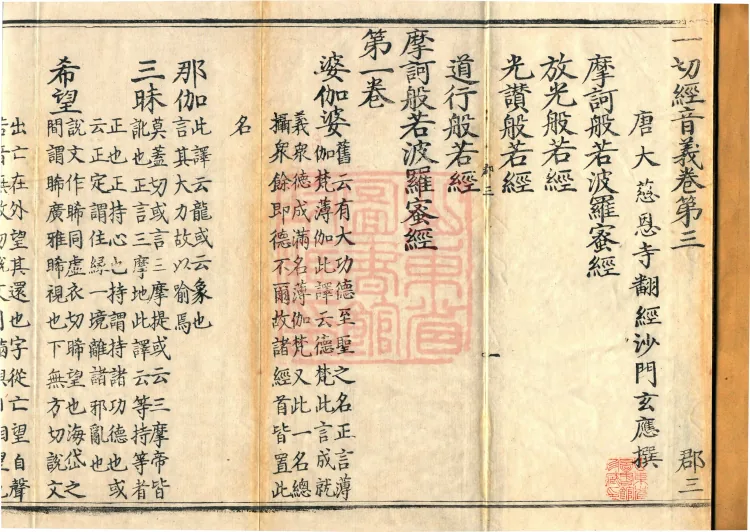 一切經音義卷第三 郡三
唐大慈恩寺翻經沙門玄應撰
摩訶般若波羅蜜經
放光般若經
光讚般若經
郡三 一
道行般若經
摩訶般若波羅蜜經
第一卷
婆伽婆 舊云有大功德至聖之名正言薄
伽梵薄伽此譯云德梵此言成就
義衆德成滿名薄伽梵又此一名總
攝衆餘即德不爾故諸經首皆置此
名
那伽 此譯云龍或云象也
言其大力故以喻焉
三昧 莫蓋切或言三摩提或云三摩帝皆
訛也正言三摩地此譯云等持等者
正也正持心也持謂持諸功德也或
云正定謂住緣一境離諸邪亂也
希望 說文作睎同虛衣切睎望也海岱之
間謂睎廣雅睎視也下無方切說文
出亡在外望其還也字從亡望自聲